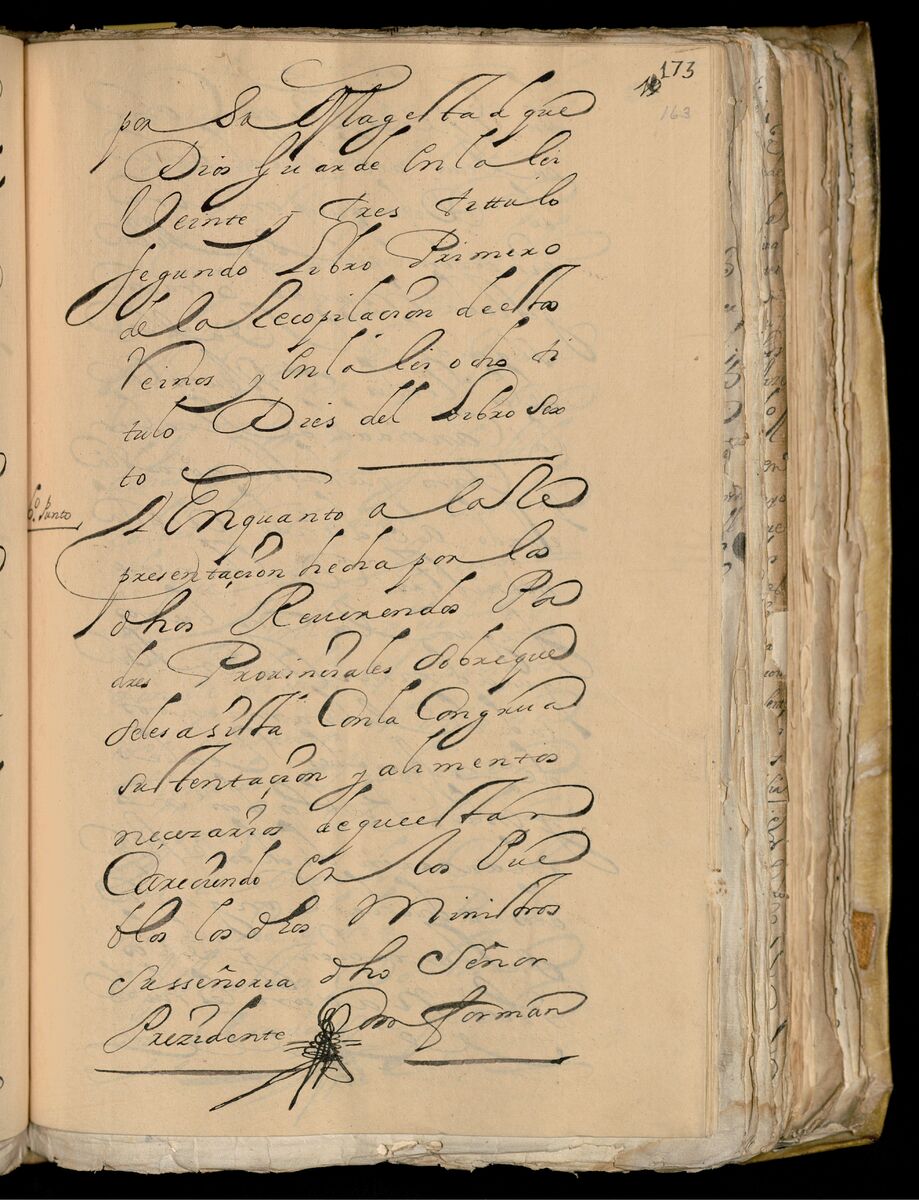 173
19
163
por Su Magestad que
Dios Guarde en la lei
Veinte y tres tittulo
segundo Libro Primero
de la Recopilacion de estos
Reinos y en la lei ocho ti
tulo Dies del Libro Sex
to
6.º Punto
En quanto a la Re
presentaçion hecha por los
dhos Reverendos Pa
dres Provinciales sobre que
se les asista Con la Congrua
sustentaçion y alimentos
neçezarios de que estan
Careçiendo en los Pue
blos los dhos Ministros
su sseñoria dho Señor
Prezidente Don